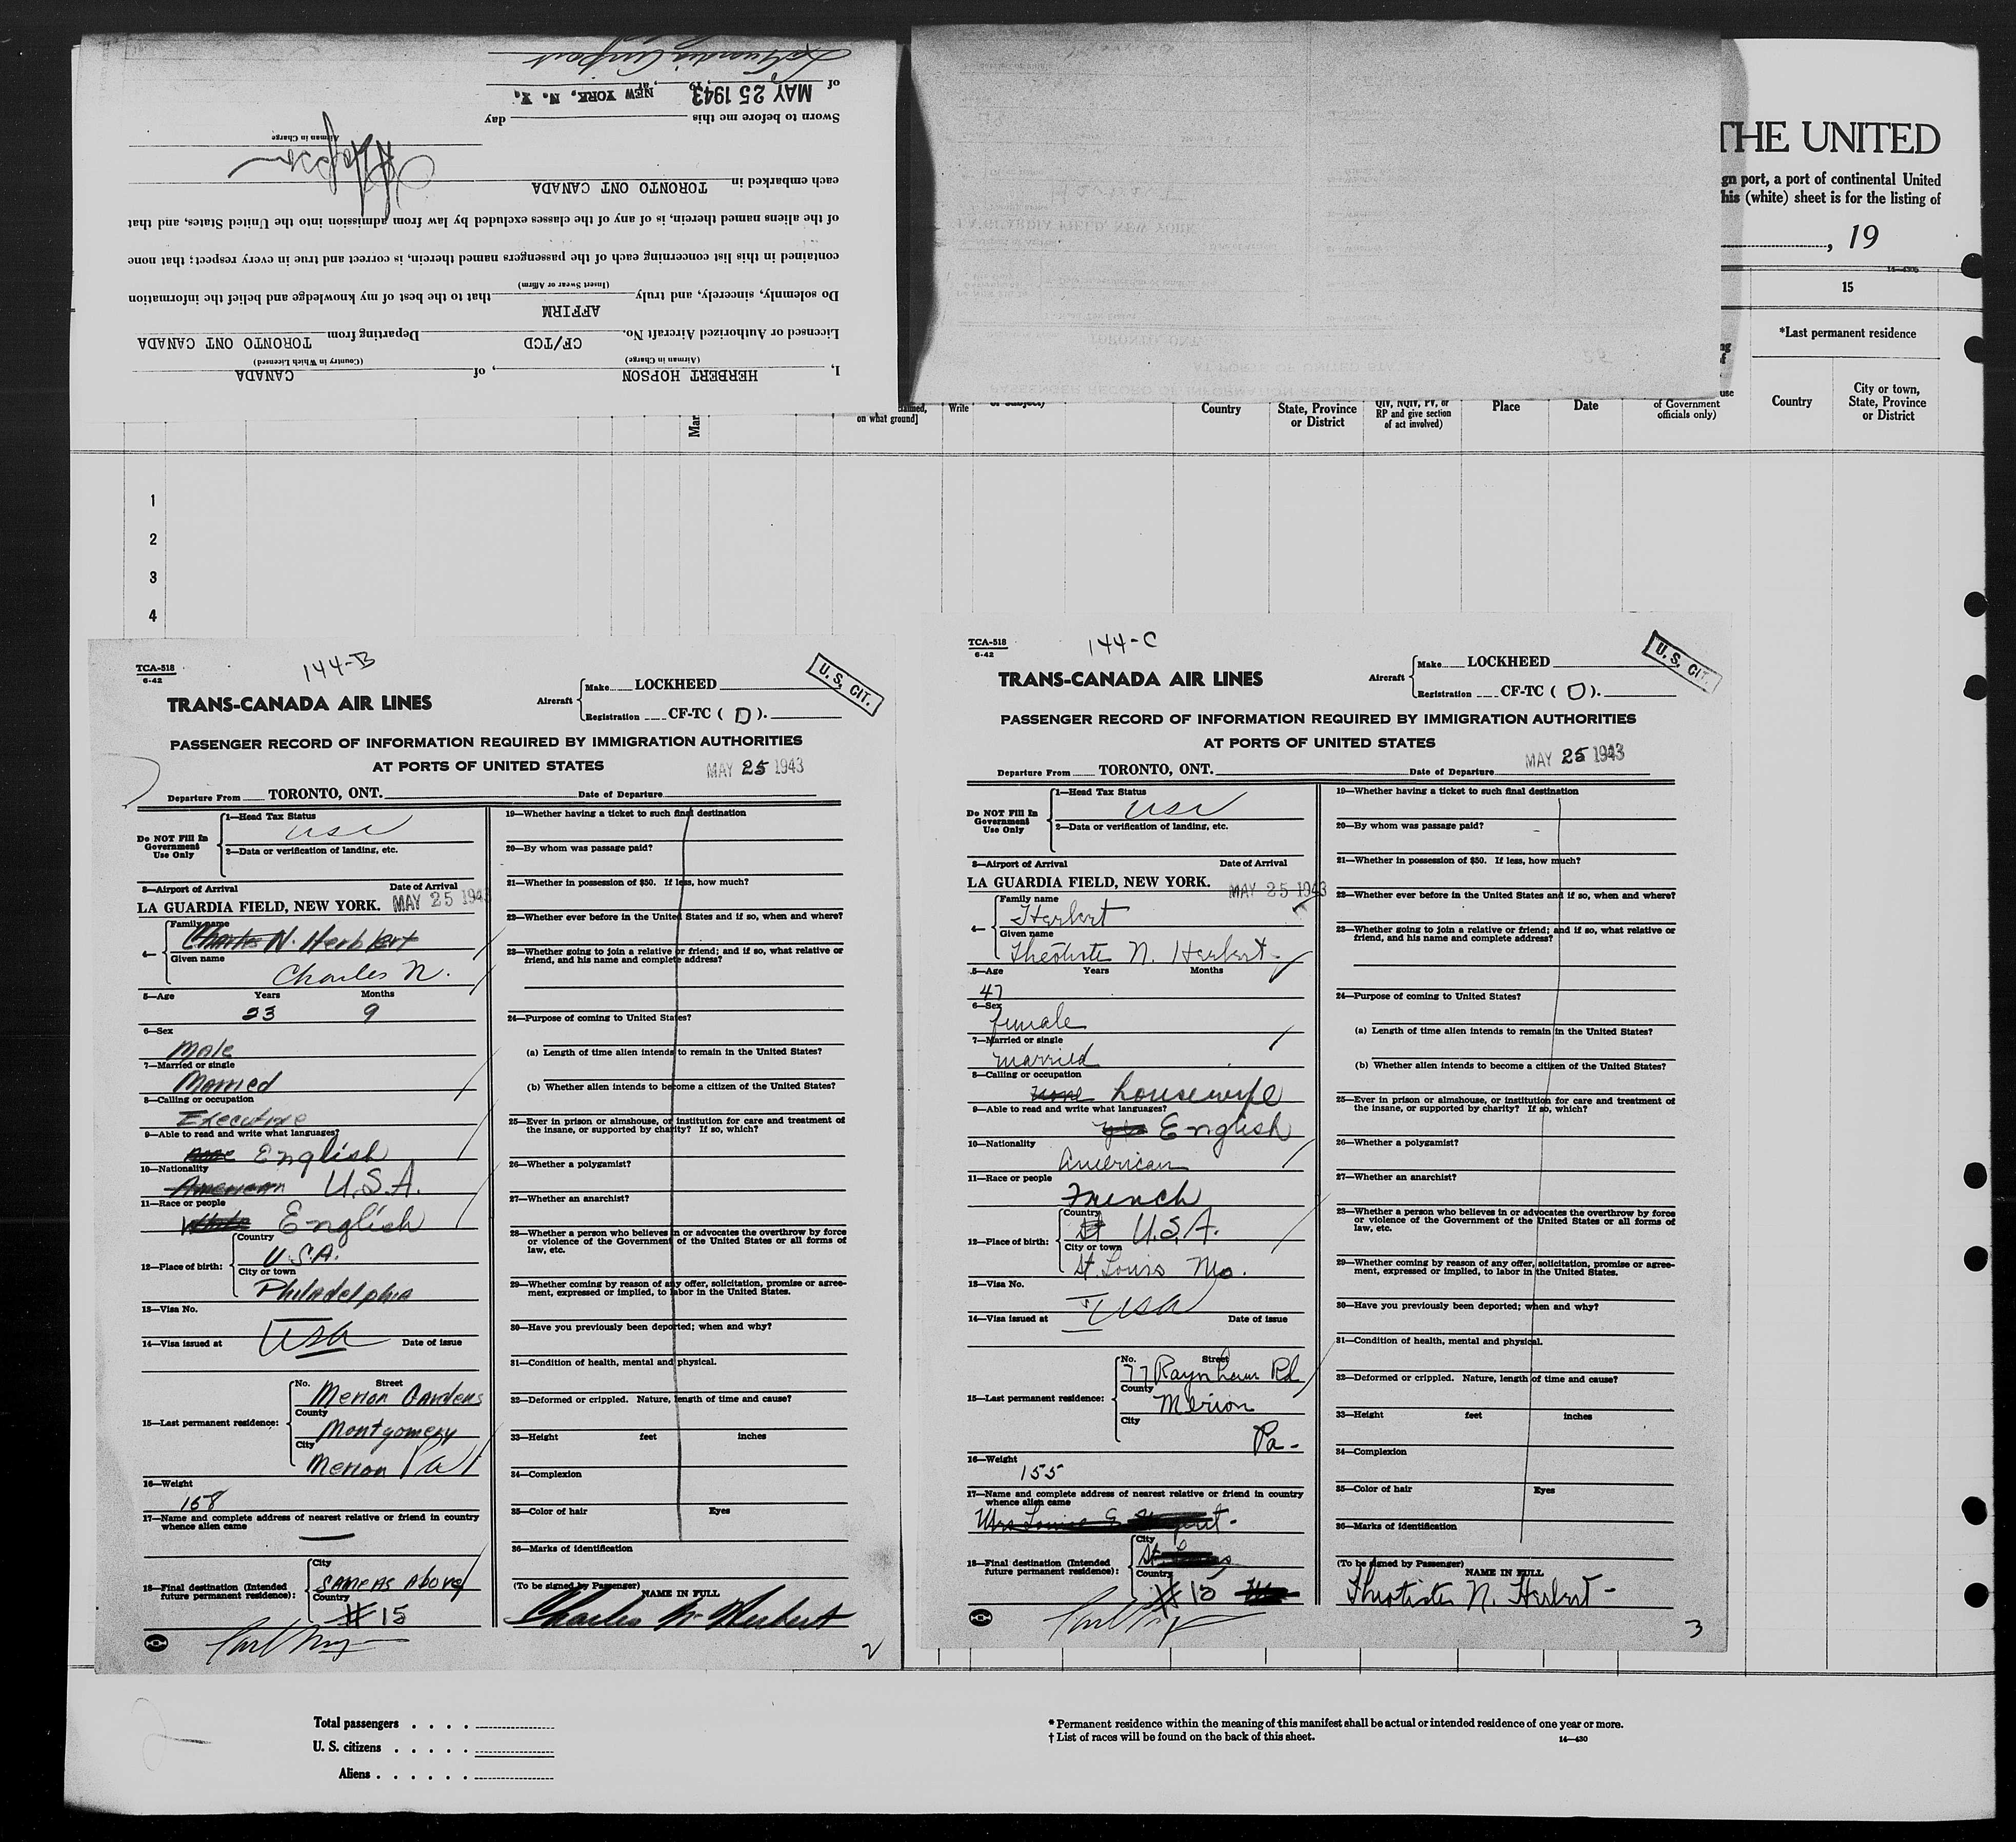 I, HERBERT HOPSON, of CANADA
(Airman in Charge) (Country in Which Licensed)
Licensed or Authorized Aircraft No. CF/TCD Departing from TORONTO ONT CANADA
Do solemnly, sincerely, and truly AFFIRM that to the best of my knowledge and belief the information
(Insert Swear or Affirm)
contained in this list concerning each of the passengers named therein, is correct and true in every respect; that none
of the aliens named therein, is of any of the classes excluded by law from admission into the United States, and that
each embarked in TORONTO ONT CANADA
Airman in Charge
Sworn to before me this day
of MAY 25 1943, 19, at NEW YORK, N. Y.
La Guardia Airport
THE UNITED
gn port, a port of continental United
his (white) sheet is for the listing of
, 19
15
*Last permanent residence
Country
City or town,
State, Province
or District
on what ground]
Write
or subject)
Country
State, Province
or District
QIV, NQIV, PV, or
RP and give section
of act involved)
Place
Date
use
of Government
officials only)
1
2
3
4
TCA-518
6-42
144-B
U. S. CIT.
TRANS-CANADA AIR LINES
Aircraft
Make LOCKHEED
Registration CF-TC ( D ).
PASSENGER RECORD OF INFORMATION REQUIRED BY IMMIGRATION AUTHORITIES
AT PORTS OF UNITED STATES
MAY 25 1943
Departure From TORONTO, ONT. Date of Departure
Do NOT Fill In
Government
Use Only
1—Head Tax Status
USC
2—Data or verification of landing, etc.
3—Airport of Arrival Date of Arrival
LA GUARDIA FIELD, NEW YORK. MAY 25 1943
4—
Family name
Charles N. Herbert
Given name
Charles N.
5—Age Years Months
53 9
6—Sex
Male
7—Married or single
Married
8—Calling or occupation
Executive
9—Able to read and write what languages?
English
10—Nationality
American U.S.A.
11—Race or people
White English
12—Place of birth:
Country
U.S.A.
City or town
Philadelphia
13—Visa No.
USA
14—Visa issued at Date of issue
15—Last permanent residence:
No. Street
Merion Gardens
County
Montgomery
City
Merion Pa
16—Weight
158
17—Name and complete address of nearest relative or friend in country
whence alien came
18—Final destination (Intended
future permanent residence):
City
SAME AS Above
Country
#15
19—Whether having a ticket to such final destination
20—By whom was passage paid?
21—Whether in possession of $50. If less, how much?
22—Whether ever before in the United States and if so, when and where?
23—Whether going to join a relative or friend; and if so, what relative or
friend, and his name and complete address?
24—Purpose of coming to United States?
(a) Length of time alien intends to remain in the United States?
(b) Whether alien intends to become a citizen of the United States?
25—Ever in prison or almshouse, or institution for care and treatment of
the insane, or supported by charity? If so, which?
26—Whether a polygamist?
27—Whether an anarchist?
28—Whether a person who believes in or advocates the overthrow by force
or violence of the Government of the United States or all forms of
law, etc.
29—Whether coming by reason of any offer, solicitation, promise or agree-
ment, expressed or implied, to labor in the United States.
30—Have you previously been deported; when and why?
31—Condition of health, mental and physical.
32—Deformed or crippled. Nature, length of time and cause?
33—Height feet inches
34—Complexion
35—Color of hair Eyes
36—Marks of identification
(To be signed by Passenger) NAME IN FULL
Charles N. Herbert
2
TCA-518
6-42
144-C
U. S. CIT.
TRANS-CANADA AIR LINES
Aircraft
Make LOCKHEED
Registration CF-TC ( D ).
PASSENGER RECORD OF INFORMATION REQUIRED BY IMMIGRATION AUTHORITIES
AT PORTS OF UNITED STATES
MAY 25 1943
Departure From TORONTO, ONT. Date of Departure
Do NOT Fill In
Government
Use Only
1—Head Tax Status
USC
2—Data or verification of landing, etc.
3—Airport of Arrival Date of Arrival
LA GUARDIA FIELD, NEW YORK. MAY 25 1943
4—
Family name
Herbert
Given name
Theotiste N. Herbert-
5—Age Years Months
47
6—Sex
female
7—Married or single
married
8—Calling or occupation
none housewife
9—Able to read and write what languages?
English
10—Nationality
American
11—Race or people
French
12—Place of birth:
Country
U.S.A.
City or town
St. Louis Mo.
13—Visa No.
USA
14—Visa issued at Date of issue
15—Last permanent residence:
No. Street
77 Raynham Rd
County
Merion
City
Pa-
16—Weight
155
17—Name and complete address of nearest relative or friend in country
whence alien came
Mrs Louise
18—Final destination (Intended
future permanent residence):
City
St. Louis
Country
#15
19—Whether having a ticket to such final destination
20—By whom was passage paid?
21—Whether in possession of $50. If less, how much?
22—Whether ever before in the United States and if so, when and where?
23—Whether going to join a relative or friend; and if so, what relative or
friend, and his name and complete address?
24—Purpose of coming to United States?
(a) Length of time alien intends to remain in the United States?
(b) Whether alien intends to become a citizen of the United States?
25—Ever in prison or almshouse, or institution for care and treatment of
the insane, or supported by charity? If so, which?
26—Whether a polygamist?
27—Whether an anarchist?
28—Whether a person who believes in or advocates the overthrow by force
or violence of the Government of the United States or all forms of
law, etc.
29—Whether coming by reason of any offer, solicitation, promise or agree-
ment, expressed or implied, to labor in the United States.
30—Have you previously been deported; when and why?
31—Condition of health, mental and physical.
32—Deformed or crippled. Nature, length of time and cause?
33—Height feet inches
34—Complexion
35—Color of hair Eyes
36—Marks of identification
(To be signed by Passenger) NAME IN FULL
Theotiste N. Herbert-
3
Total passengers . . . .
U. S. citizens . . . . .
Aliens . . . . . .
* Permanent residence within the meaning of this manifest shall be actual or intended residence of one year or more.
† List of races will be found on the back of this sheet. 14—430